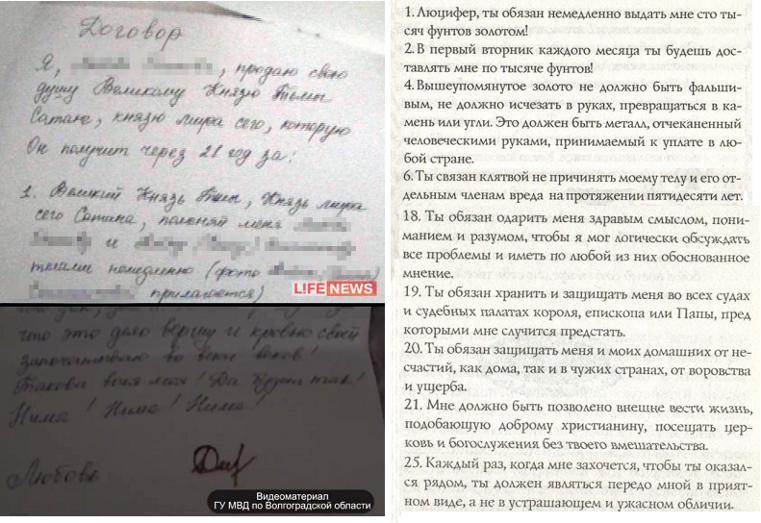 Договор
Я, , продаю свою
душу Великому Князю Тьмы
Сатане, князю мира сего, которую
Он получит через 21 год за:
1. Великий Князь Тьмы, Князь мира
сего Сатана, поменяй меня
и
телами немедленно (фото
прилагается)
LIFE NEWS
что это дело вершу и кровью своей
запечатываю во веки веков!
Такова воля моя! Да будет так!
Нима! Нима! Нима!
Любовь
Видеоматериал
ГУ МВД по Волгоградской области
1. Люцифер, ты обязан немедленно выдать мне сто ты-
сяч фунтов золотом!
2. В первый вторник каждого месяца ты будешь дос-
тавлять мне по тысяче фунтов!
4. Вышеупомянутое золото не должно быть фальши-
вым, не должно исчезать в руках, превращаться в ка-
мень или угли. Это должен быть металл, отчеканенный
человеческими руками, принимаемый к уплате в лю-
бой стране.
6. Ты связан клятвой не причинять моему телу и его от-
дельным членам вреда на протяжении пятидесяти лет.
18. Ты обязан одарить меня здравым смыслом, пони-
манием и разумом, чтобы я мог логически обсуждать
все проблемы и иметь по любой из них обоснованное
мнение.
19. Ты обязан хранить и защищать меня во всех судах
и судебных палатах короля, епископа или Папы, пред
которыми мне случится предстать.
20. Ты обязан защищать меня и моих домашних от не-
счастий, как дома, так и в чужих странах, от воровства
и ущерба.
21. Мне должно быть позволено внешне вести жизнь,
подобающую доброму христианину, посещать цер-
ковь и богослужения без твоего вмешательства.
25. Каждый раз, когда мне захочется, чтобы ты оказал-
ся рядом, ты должен являться передо мной в прият-
ном виде, а не в устрашающем и ужасном обличии.